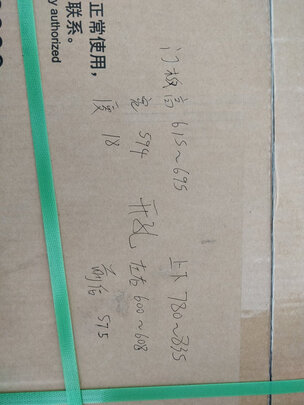 正常使用，
联系。
y authorized
门板高 615~695
宽 594
厚 18
开孔
上下 780~835
左右 600~608
前后 575